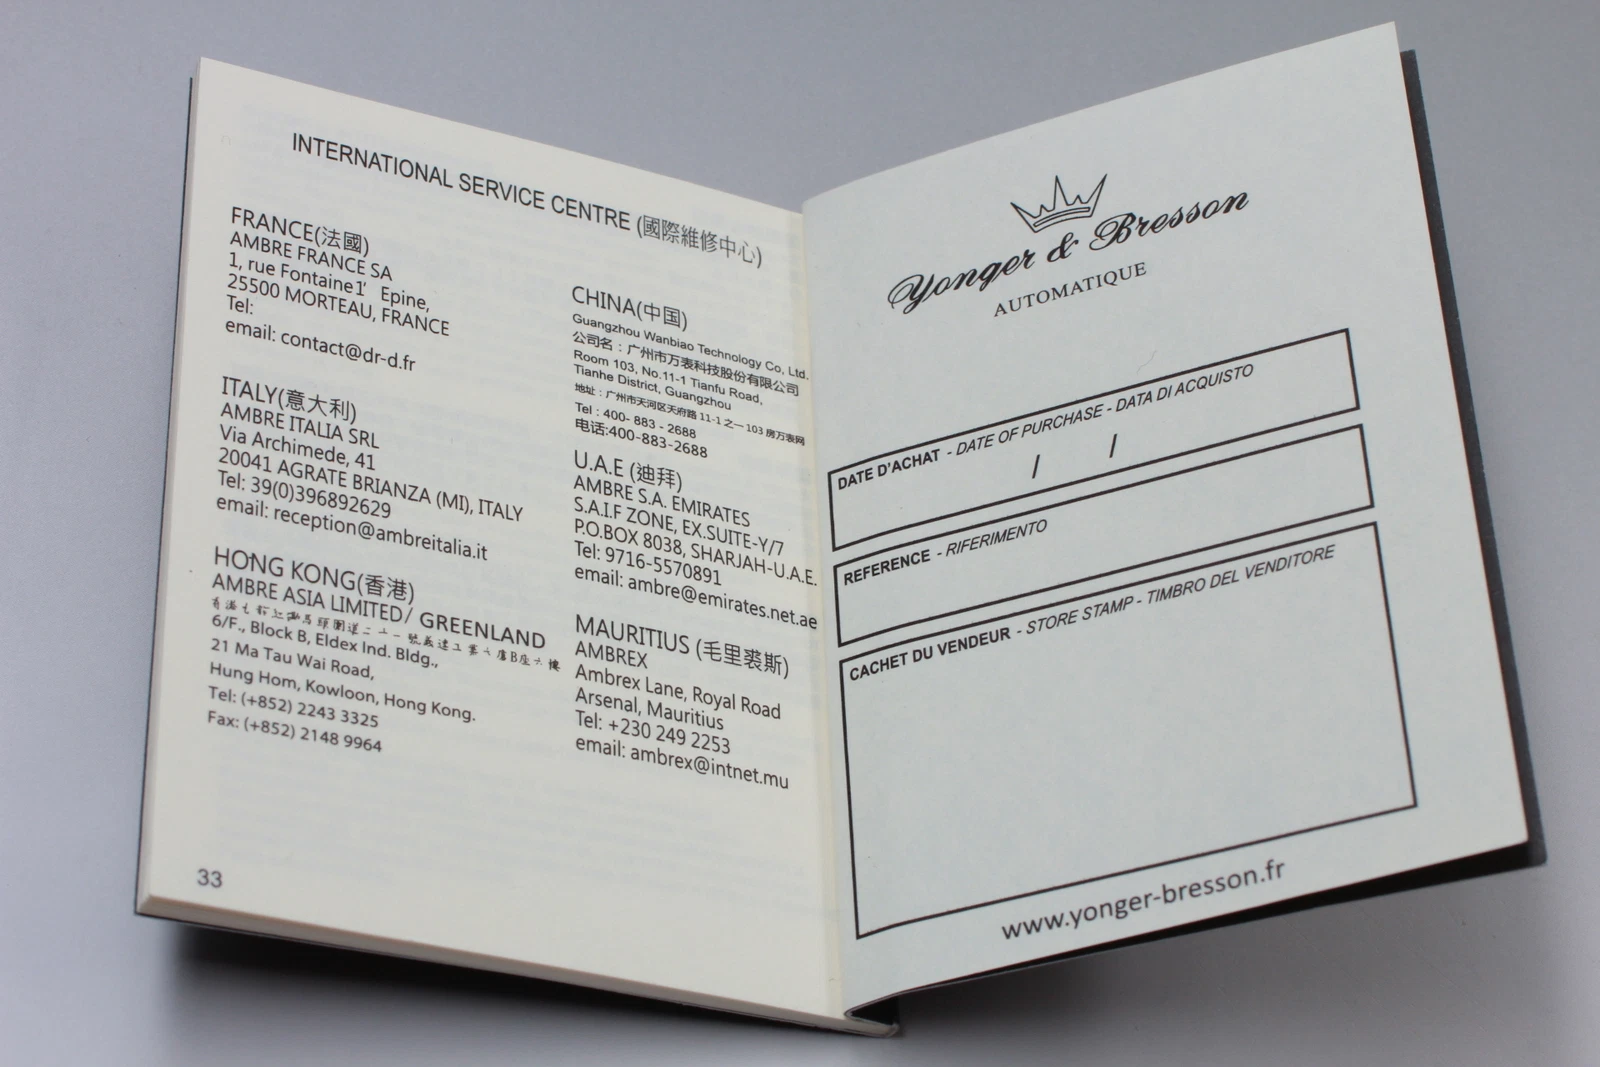 INTERNATIONAL SERVICE CENTRE (國際維修中心)
FRANCE(法國)
AMBRE FRANCE SA
1, rue Fontaine1’ Epine,
25500 MORTEAU, FRANCE
Tel:
email: contact@dr-d.fr
ITALY(意大利)
AMBRE ITALIA SRL
Via Archimede, 41
20041 AGRATE BRIANZA (MI), ITALY
Tel: 39(0)396892629
email: reception@ambreitalia.it
HONG KONG(香港)
AMBRE ASIA LIMITED/ GREENLAND
6/F., Block B, Eldex Ind. Bldg.,
21 Ma Tau Wai Road,
Hung Hom, Kowloon, Hong Kong.
Tel: (+852) 2243 3325
Fax: (+852) 2148 9964
33
CHINA(中国)
Guangzhou Wanbiao Technology Co, Ltd.
公司名：广州市万表科技股份有限公司
Room 103, No.11-1 Tianfu Road,
Tianhe District, Guangzhou
地址：广州市天河区天府路 11-1 之一 103 房万表网
Tel : 400- 883 - 2688
电话:400-883-2688
U.A.E (迪拜)
AMBRE S.A. EMIRATES
S.A.I.F ZONE, EX.SUITE-Y/7
P.O.BOX 8038, SHARJAH-U.A.E.
Tel: 9716-5570891
email: ambre@emirates.net.ae
MAURITIUS (毛里裘斯)
AMBREX
Ambrex Lane, Royal Road
Arsenal, Mauritius
Tel: +230 249 2253
email: ambrex@intnet.mu
Yonger & Bresson
AUTOMATIQUE
DATE D'ACHAT - DATE OF PURCHASE - DATA DI ACQUISTO
/ /
REFERENCE - RIFERIMENTO
CACHET DU VENDEUR - STORE STAMP - TIMBRO DEL VENDITORE
www.yonger-bresson.fr